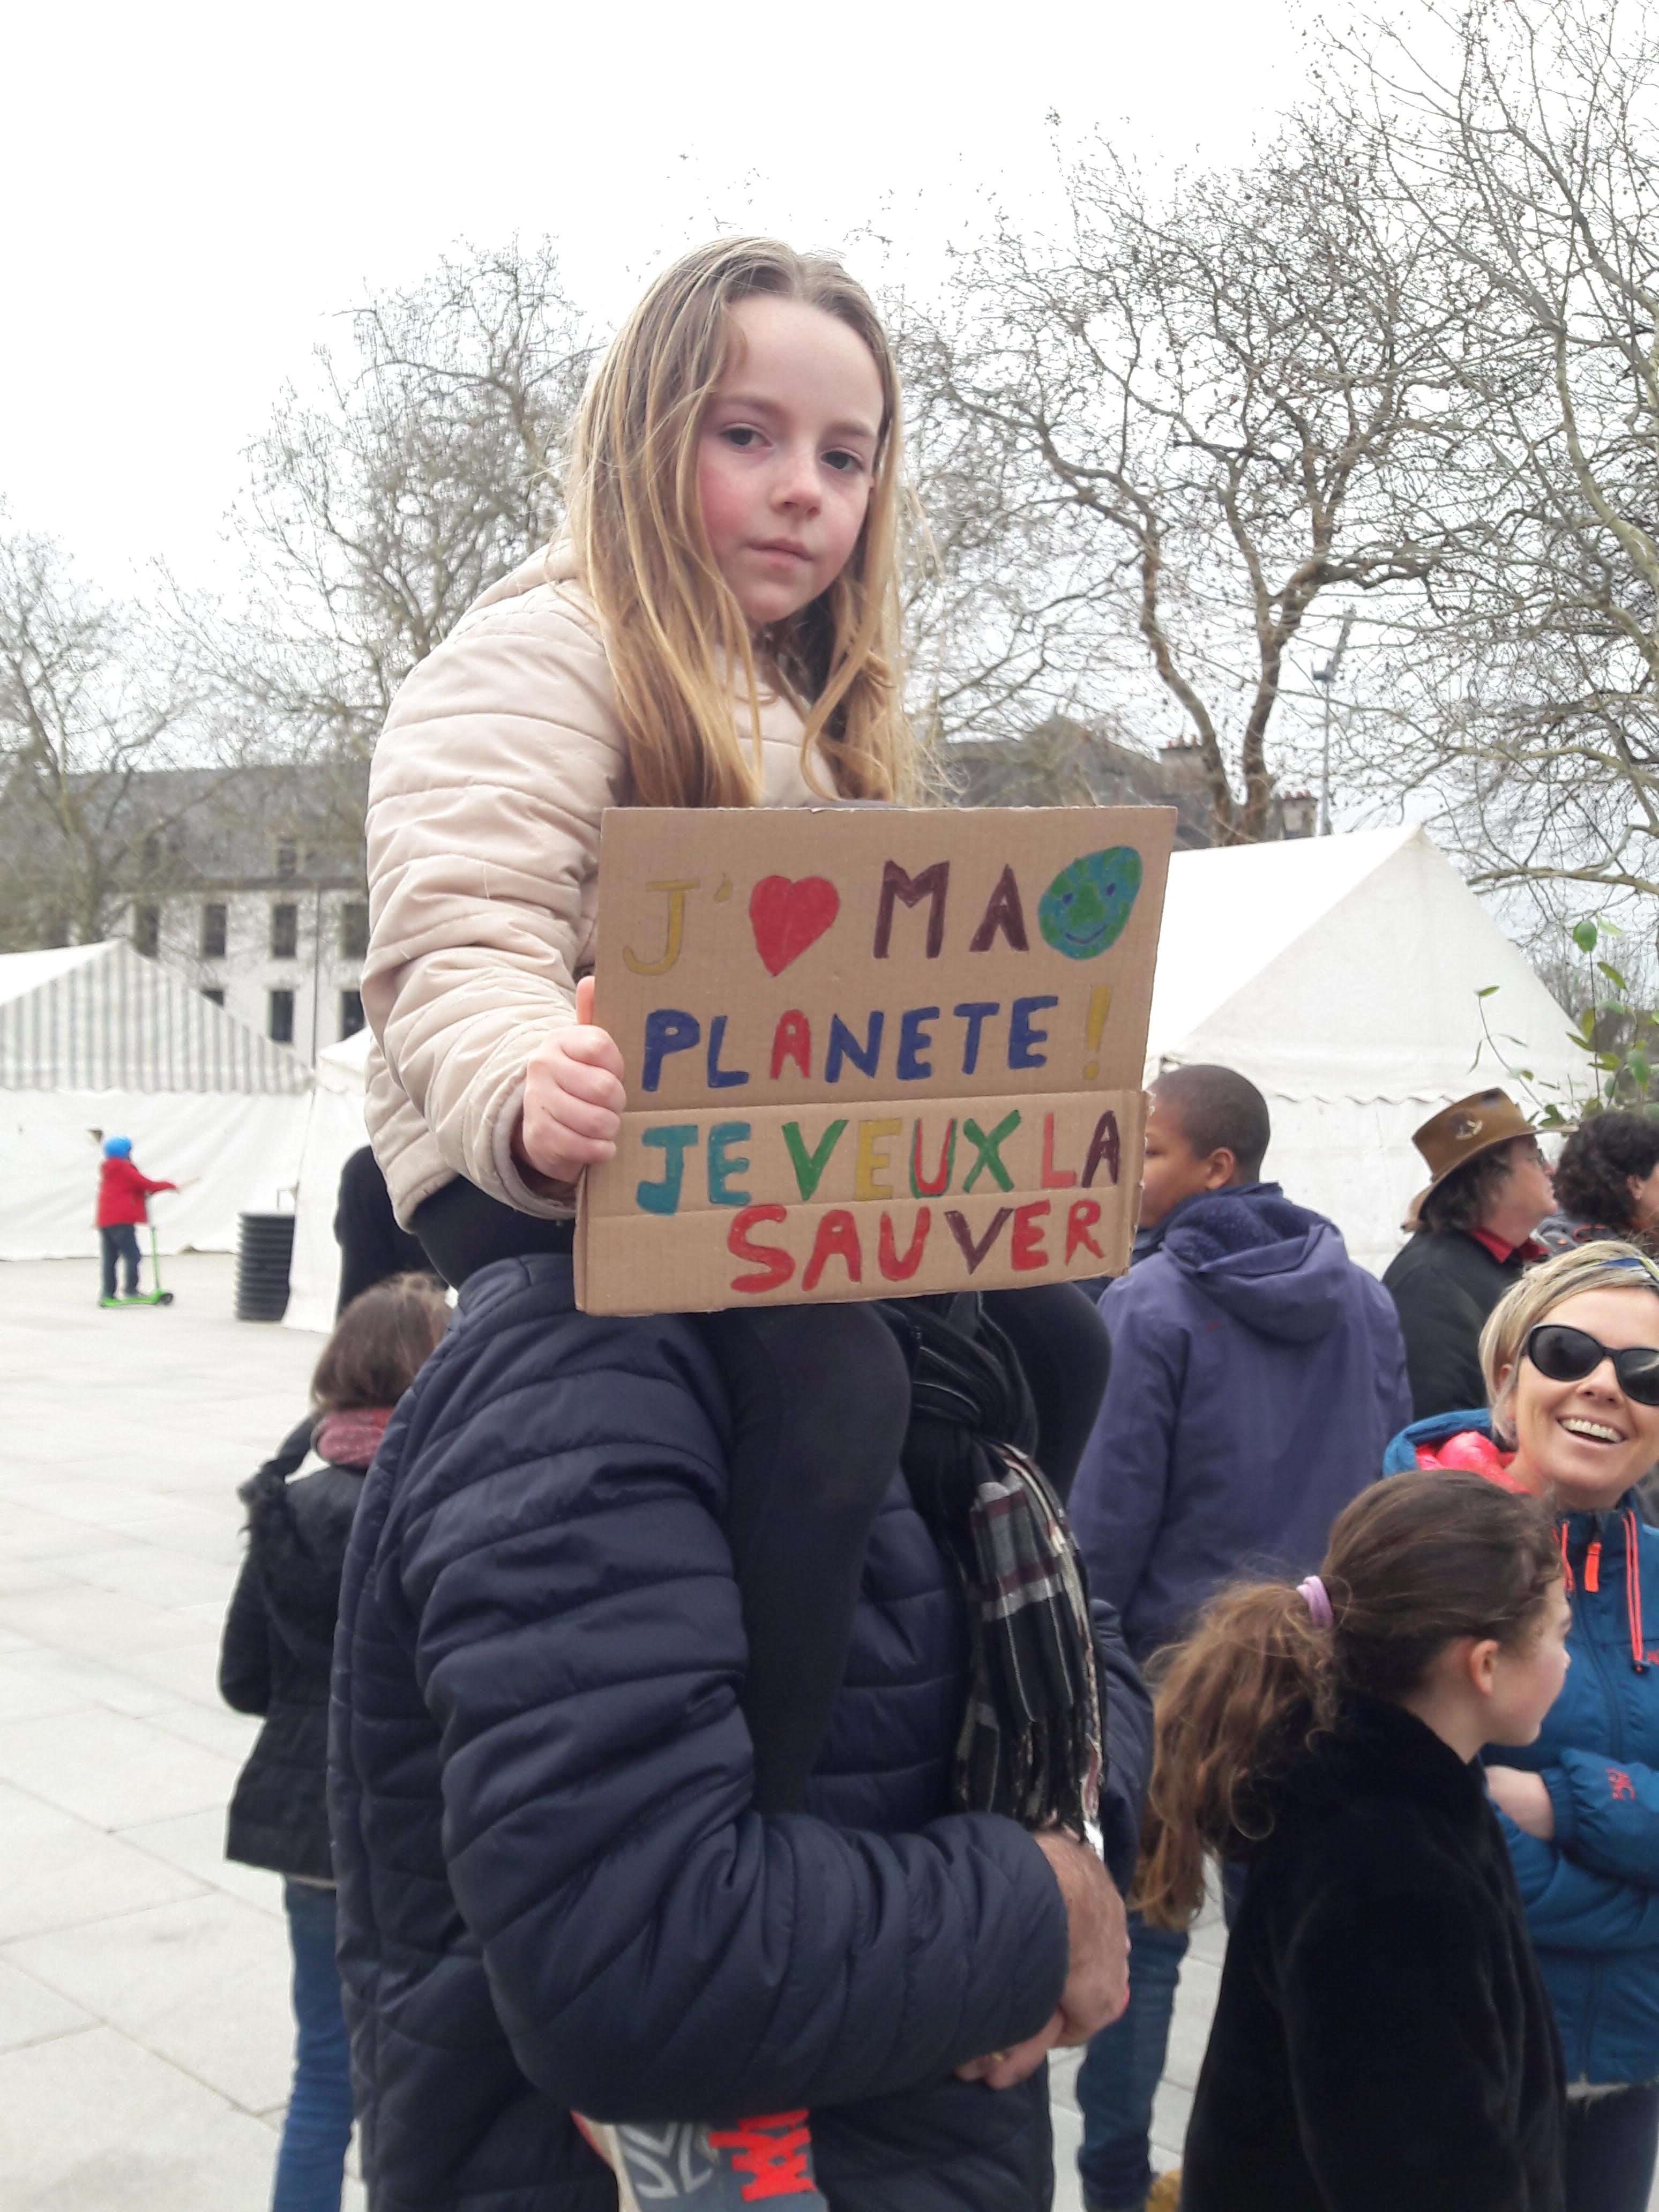 J'❤ MA
PLANETE !
JE VEUX LA
SAUVER